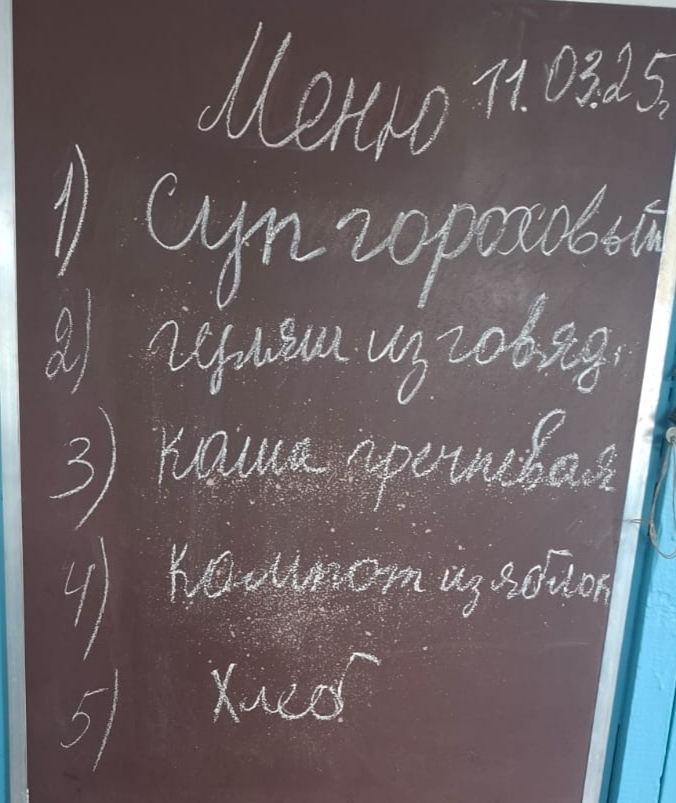 Меню 11.03.25г
1) Суп гороховый
2) гуляш из говяд.
3) каша гречневая
4) Компот из яблок
5) Хлеб